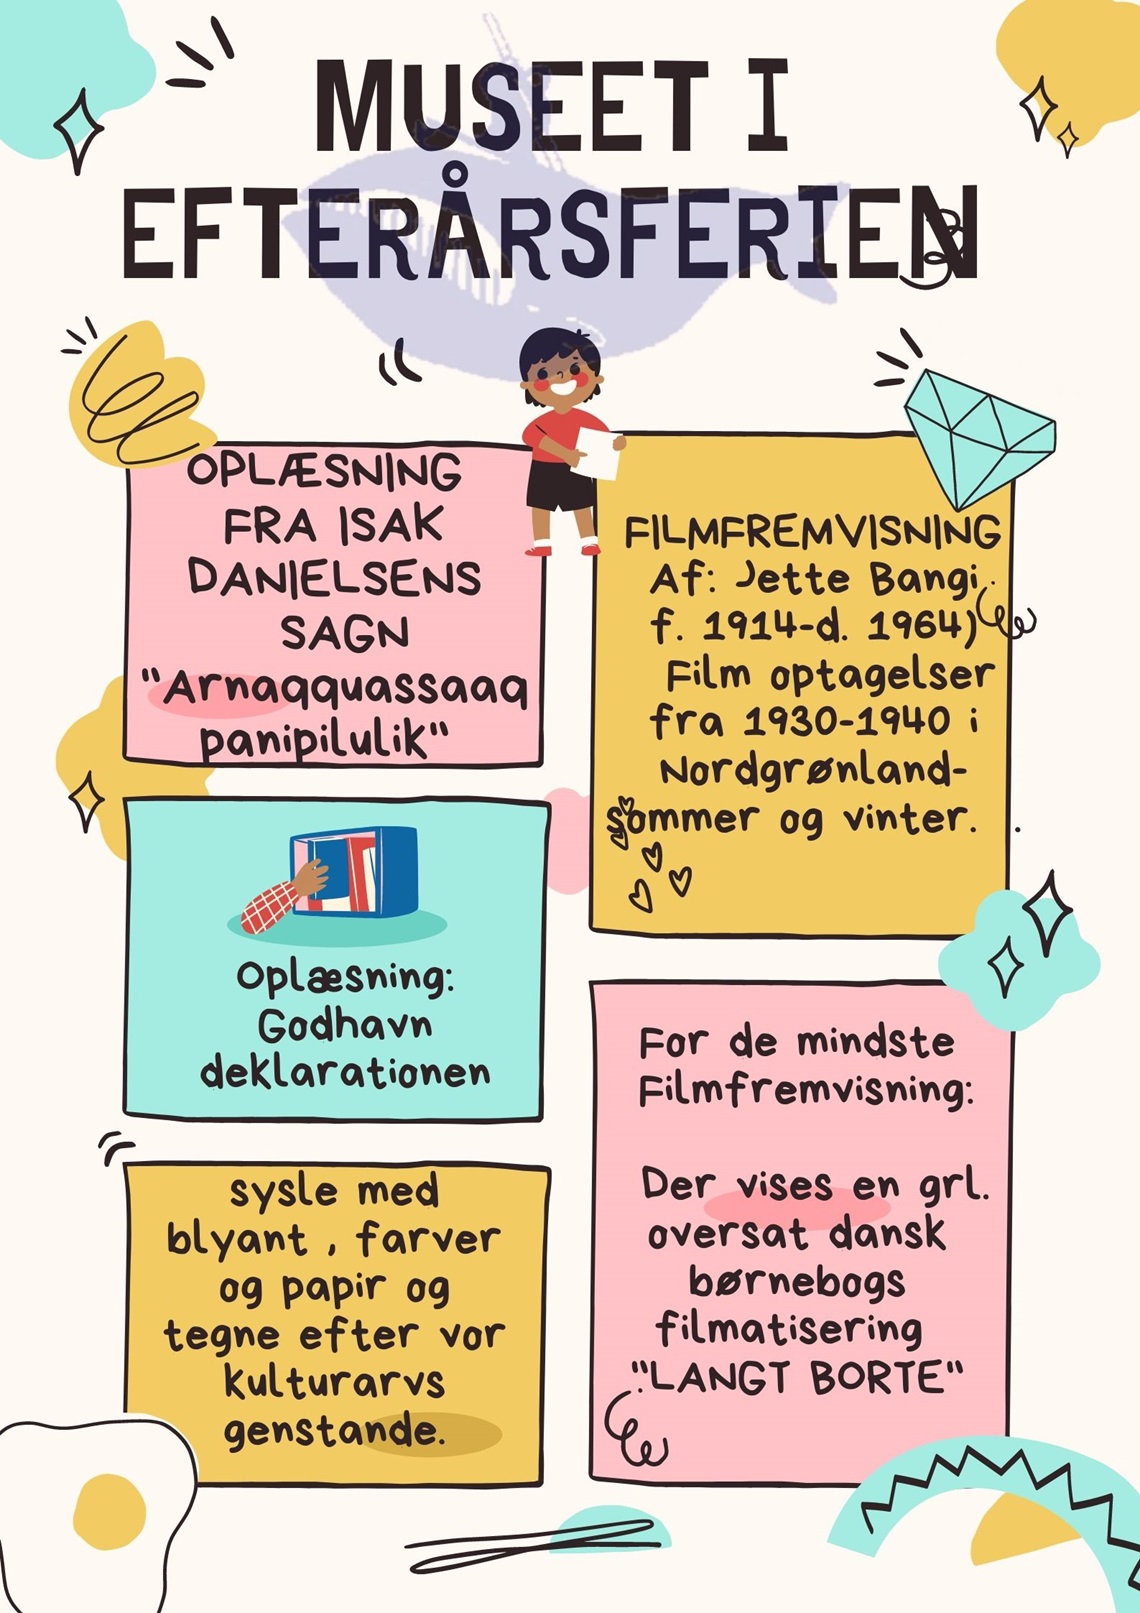 MUSEET I
EFTERÅRSFERIEN
OPLÆSNING
FRA ISAK
DANIELSENS
SAGN
"Arnaqquassaaq
panipilulik"
FILMFREMVISNING
Af: Jette Bangi.
f. 1914-d. 1964)
Film optagelser
fra 1930-1940 i
Nordgrønland-
sommer og vinter. .
Oplæsning:
Godhavn
deklarationen
sysle med
blyant , farver
og papir og
tegne efter vor
kulturarvs
genstande.
For de mindste
Filmfremvisning:
Der vises en grl.
oversat dansk
børnebogs
filmatisering
"LANGT BORTE"